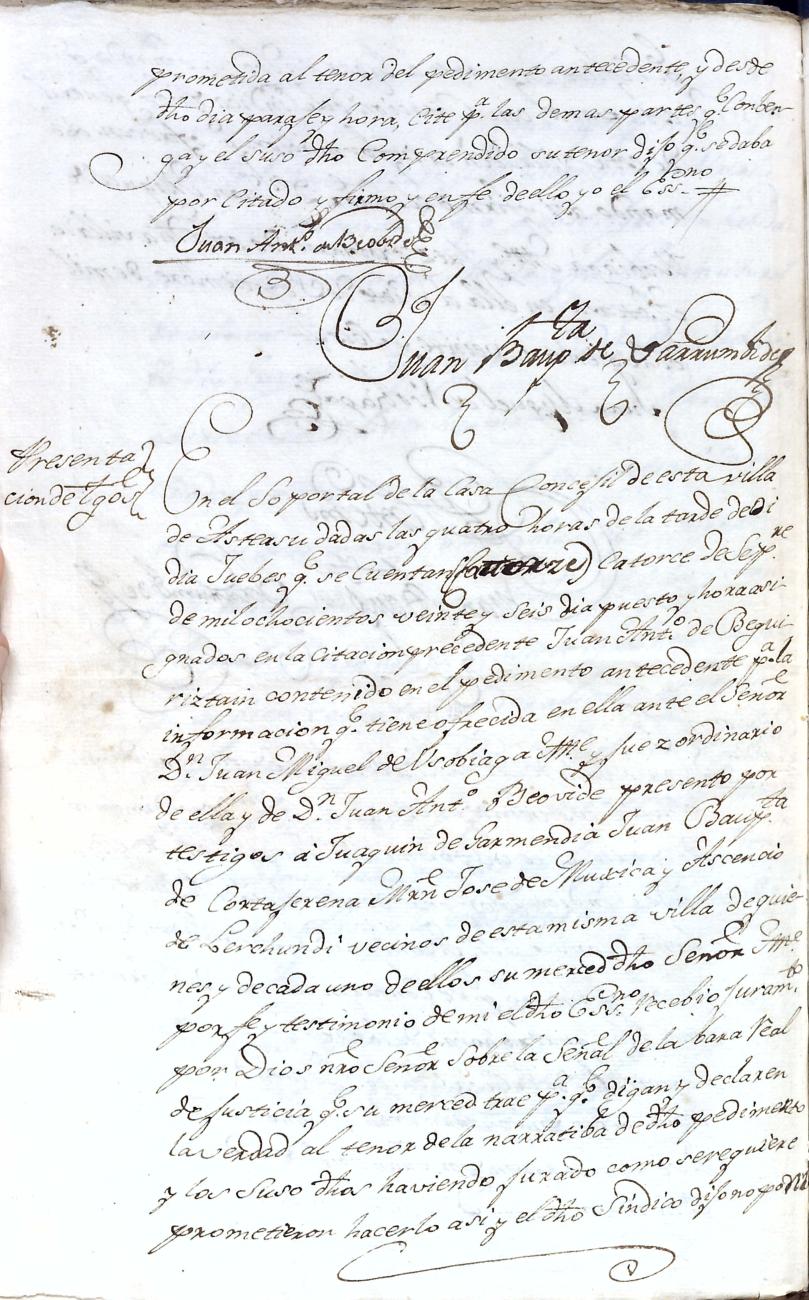 prometida al tenor del pedimento antecedente, y desde
dho dia parase y hora, cite pª. las demas partes qᵉ. Conben-
ga y el suso dho Comprendido su tenor dijo qᵉ. se daba
por Citado y firmo y en fe de ello yo el Essⁿᵒ
Juan Antº. de Beobide
Juan Baupᵗᵃ de Larrumbide
Presenta
cion de tgos
En el So portal de la Casa Concegil de esta villa
de Asteasu dadas las quatro horas de la tarde de oi
dia Juebes qᵉ. se Cuentan (Catorze) Catorce de Sepʳᵉ
de mil ochocientos veinte y seis dia puesto y hora asi-
gnados en la citacion precedente Juan Antº. de Begui-
riztain contenido en el pedimento antecedente pª. la
informacion qᵉ. tiene ofrecida en ella ante el Señor
Dⁿ. Juan Miguel de Usobiaga Alldᵉ y Juez ordinario
de ella y de Dⁿ. Juan Antº. Beovide presento por
testigos á Juaquin de Garmendia Juan Baupᵗᵃ.
de Cortaserena Mrñ Jose de Muxica y Ascencio
de Lerchundi vecinos de esta misma villa de quie-
nes y de cada uno de ellos su merced dho Señor Alldᵉ
por fe y testimonio de mi el dho Essⁿᵒ. recebio juramᵗᵒ.
por Dios nro Señor sobre la Señal de la bara Real
de justicia qᵉ. su merced trae pª. qᵉ. digan y declaren
la verdad al tenor de la narratiba de dho pedimento
y los suso dhos haviendo jurado como se requiere
prometieron hacerlo asi y el dho Síndico dijo no podia